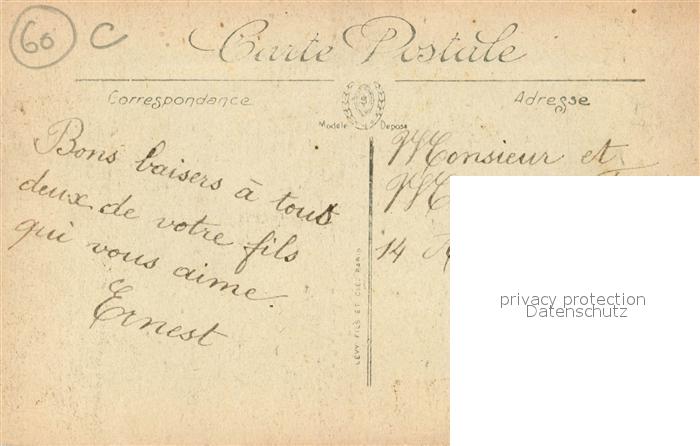 60 C
Carte Postale
Correspondance
Adresse
Modèle Déposé
Bons baisers à tous
deux de votre fils
qui vous aime.
Ernest
LEVY FILS ET CIE, PARIS
Monsieur et
14
privacy protection
Datenschutz